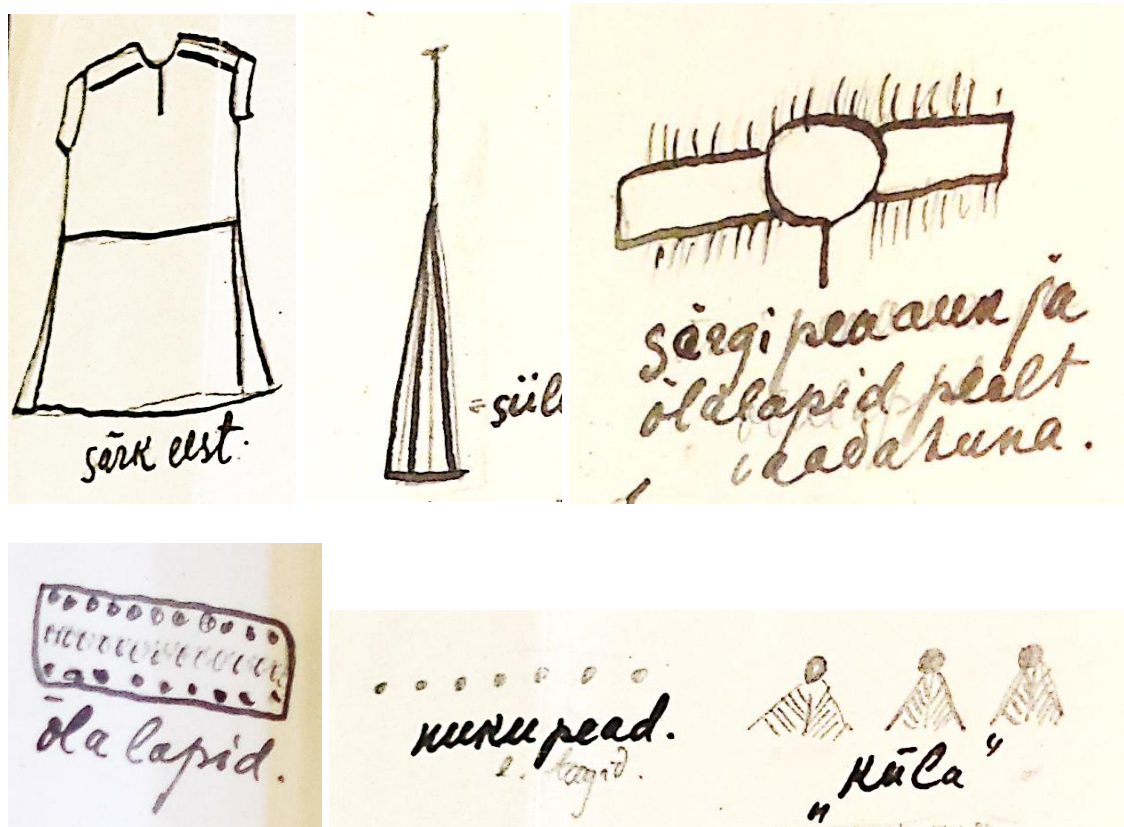 särk eest.
= siil
särgi peaauk ja
õlalapid pealt
vaadatuna.
õlalapid.
nuku pead.
e. tagid.
„Küla"